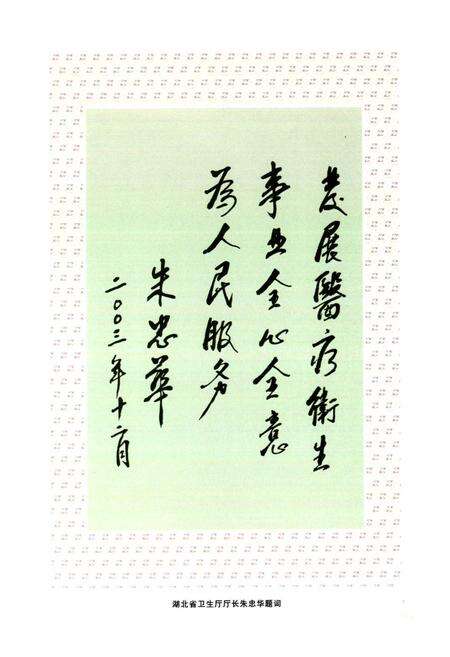 发展醫疗衛生
事业全心全意
为人民服务
朱忠华
二〇〇三年十二月
湖北省卫生厅厅长朱忠华题词